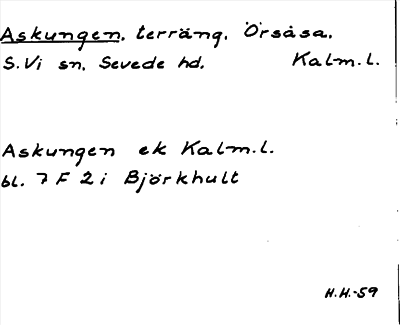 Askungen. terräng. Örsåsa.
S. Vi sn. Sevede hd. Kalm.l.
Askungen ek Kalm.l.
bl. 7 F 2 i Björkhult
H.H.-59